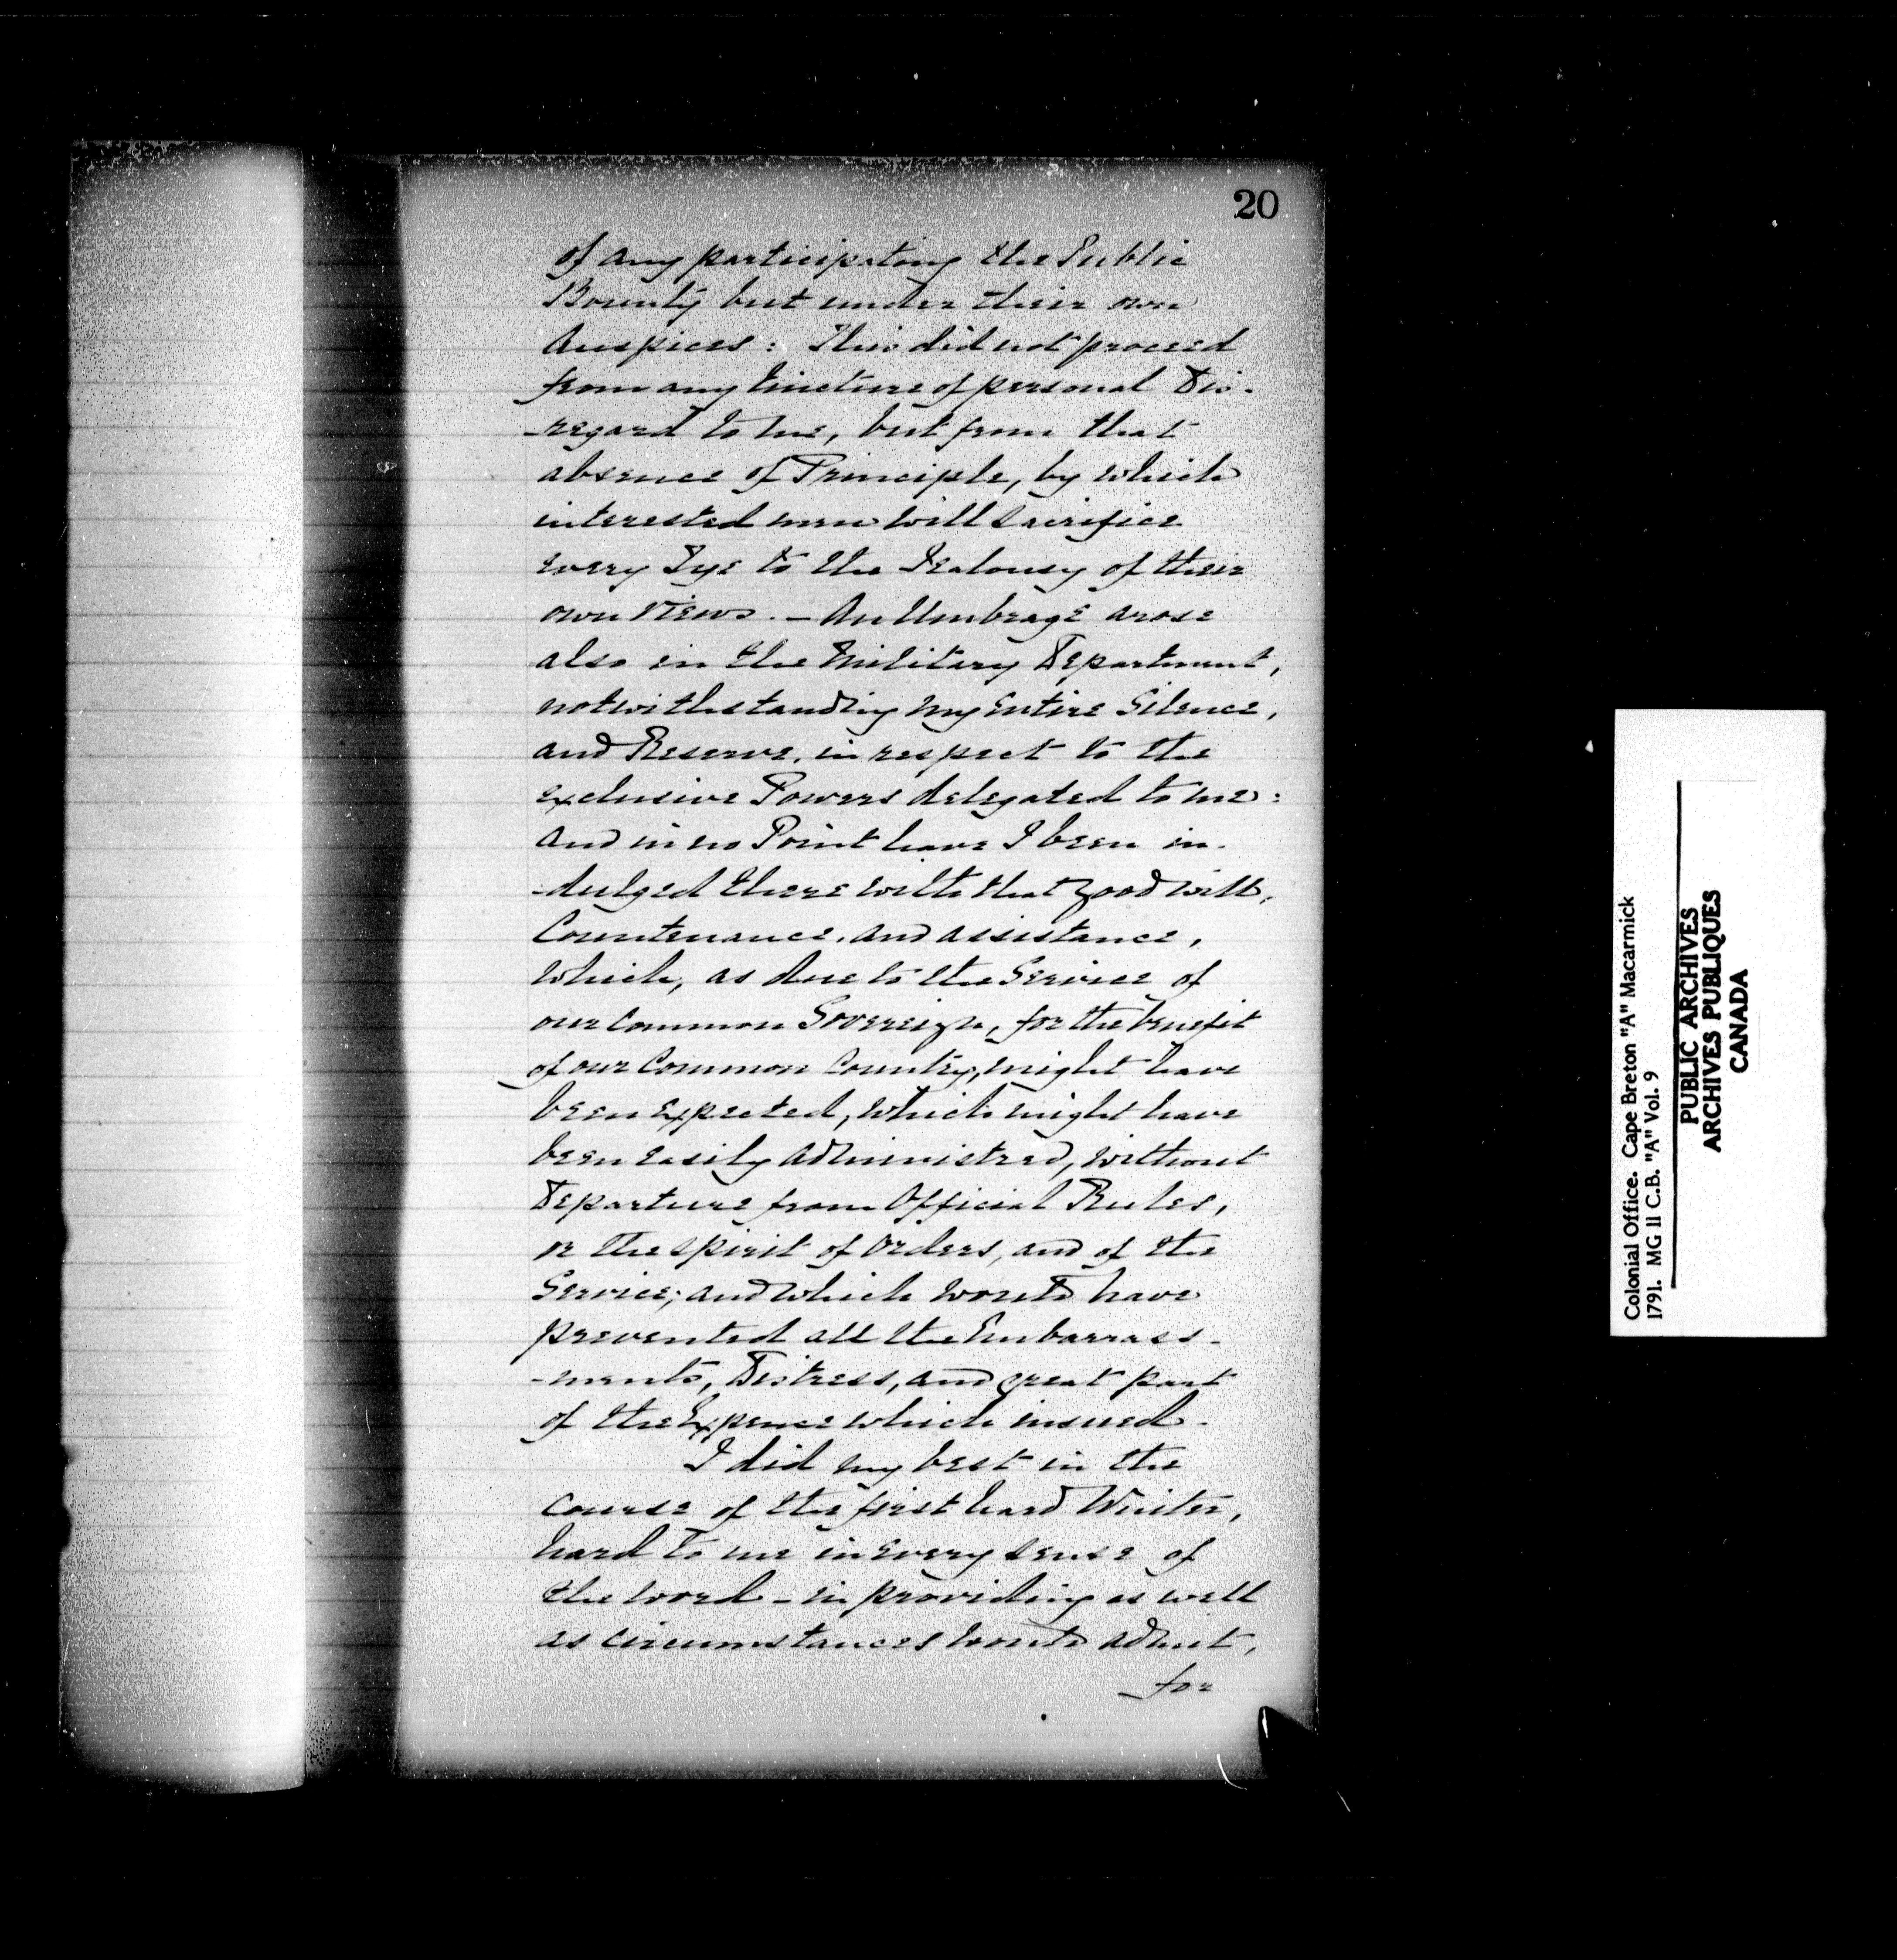 20
of any participating the Public
Bounty but under their own
Auspices: This did not proceed
from any tincture of personal Dis-
-regard to me, but from that
absence of Principle, by which
interested men will sacrifice
every Tye to the Jealousy of their
own views. — An Umbrage arose
also in the Military Department,
notwithstanding my entire Silence,
and Reserve, in respect to the
exclusive Powers delegated to me:
and in no Point have I been in-
-dulged there with that good will,
Countenance, and assistance,
which, as due to the Service of
our common Sovereign, for the benefit
of our Common Country, might have
been expected, which might have
been easily administred, without
Departure from Official Rules,
or the spirit of orders, and of the
Service; and which would have
prevented all the Embarrass-
-ments, Distress, and great part
of the Expence which insued.
I did my best in the
course of the first hard Winter,
hard to me in every sense of
the word - in providing as well
as circumstances would admit,
for
Colonial Office. Cape Breton "A" Macarmick
1791. MG 11 C.B. "A" Vol. 9
PUBLIC ARCHIVES
ARCHIVES PUBLIQUES
CANADA